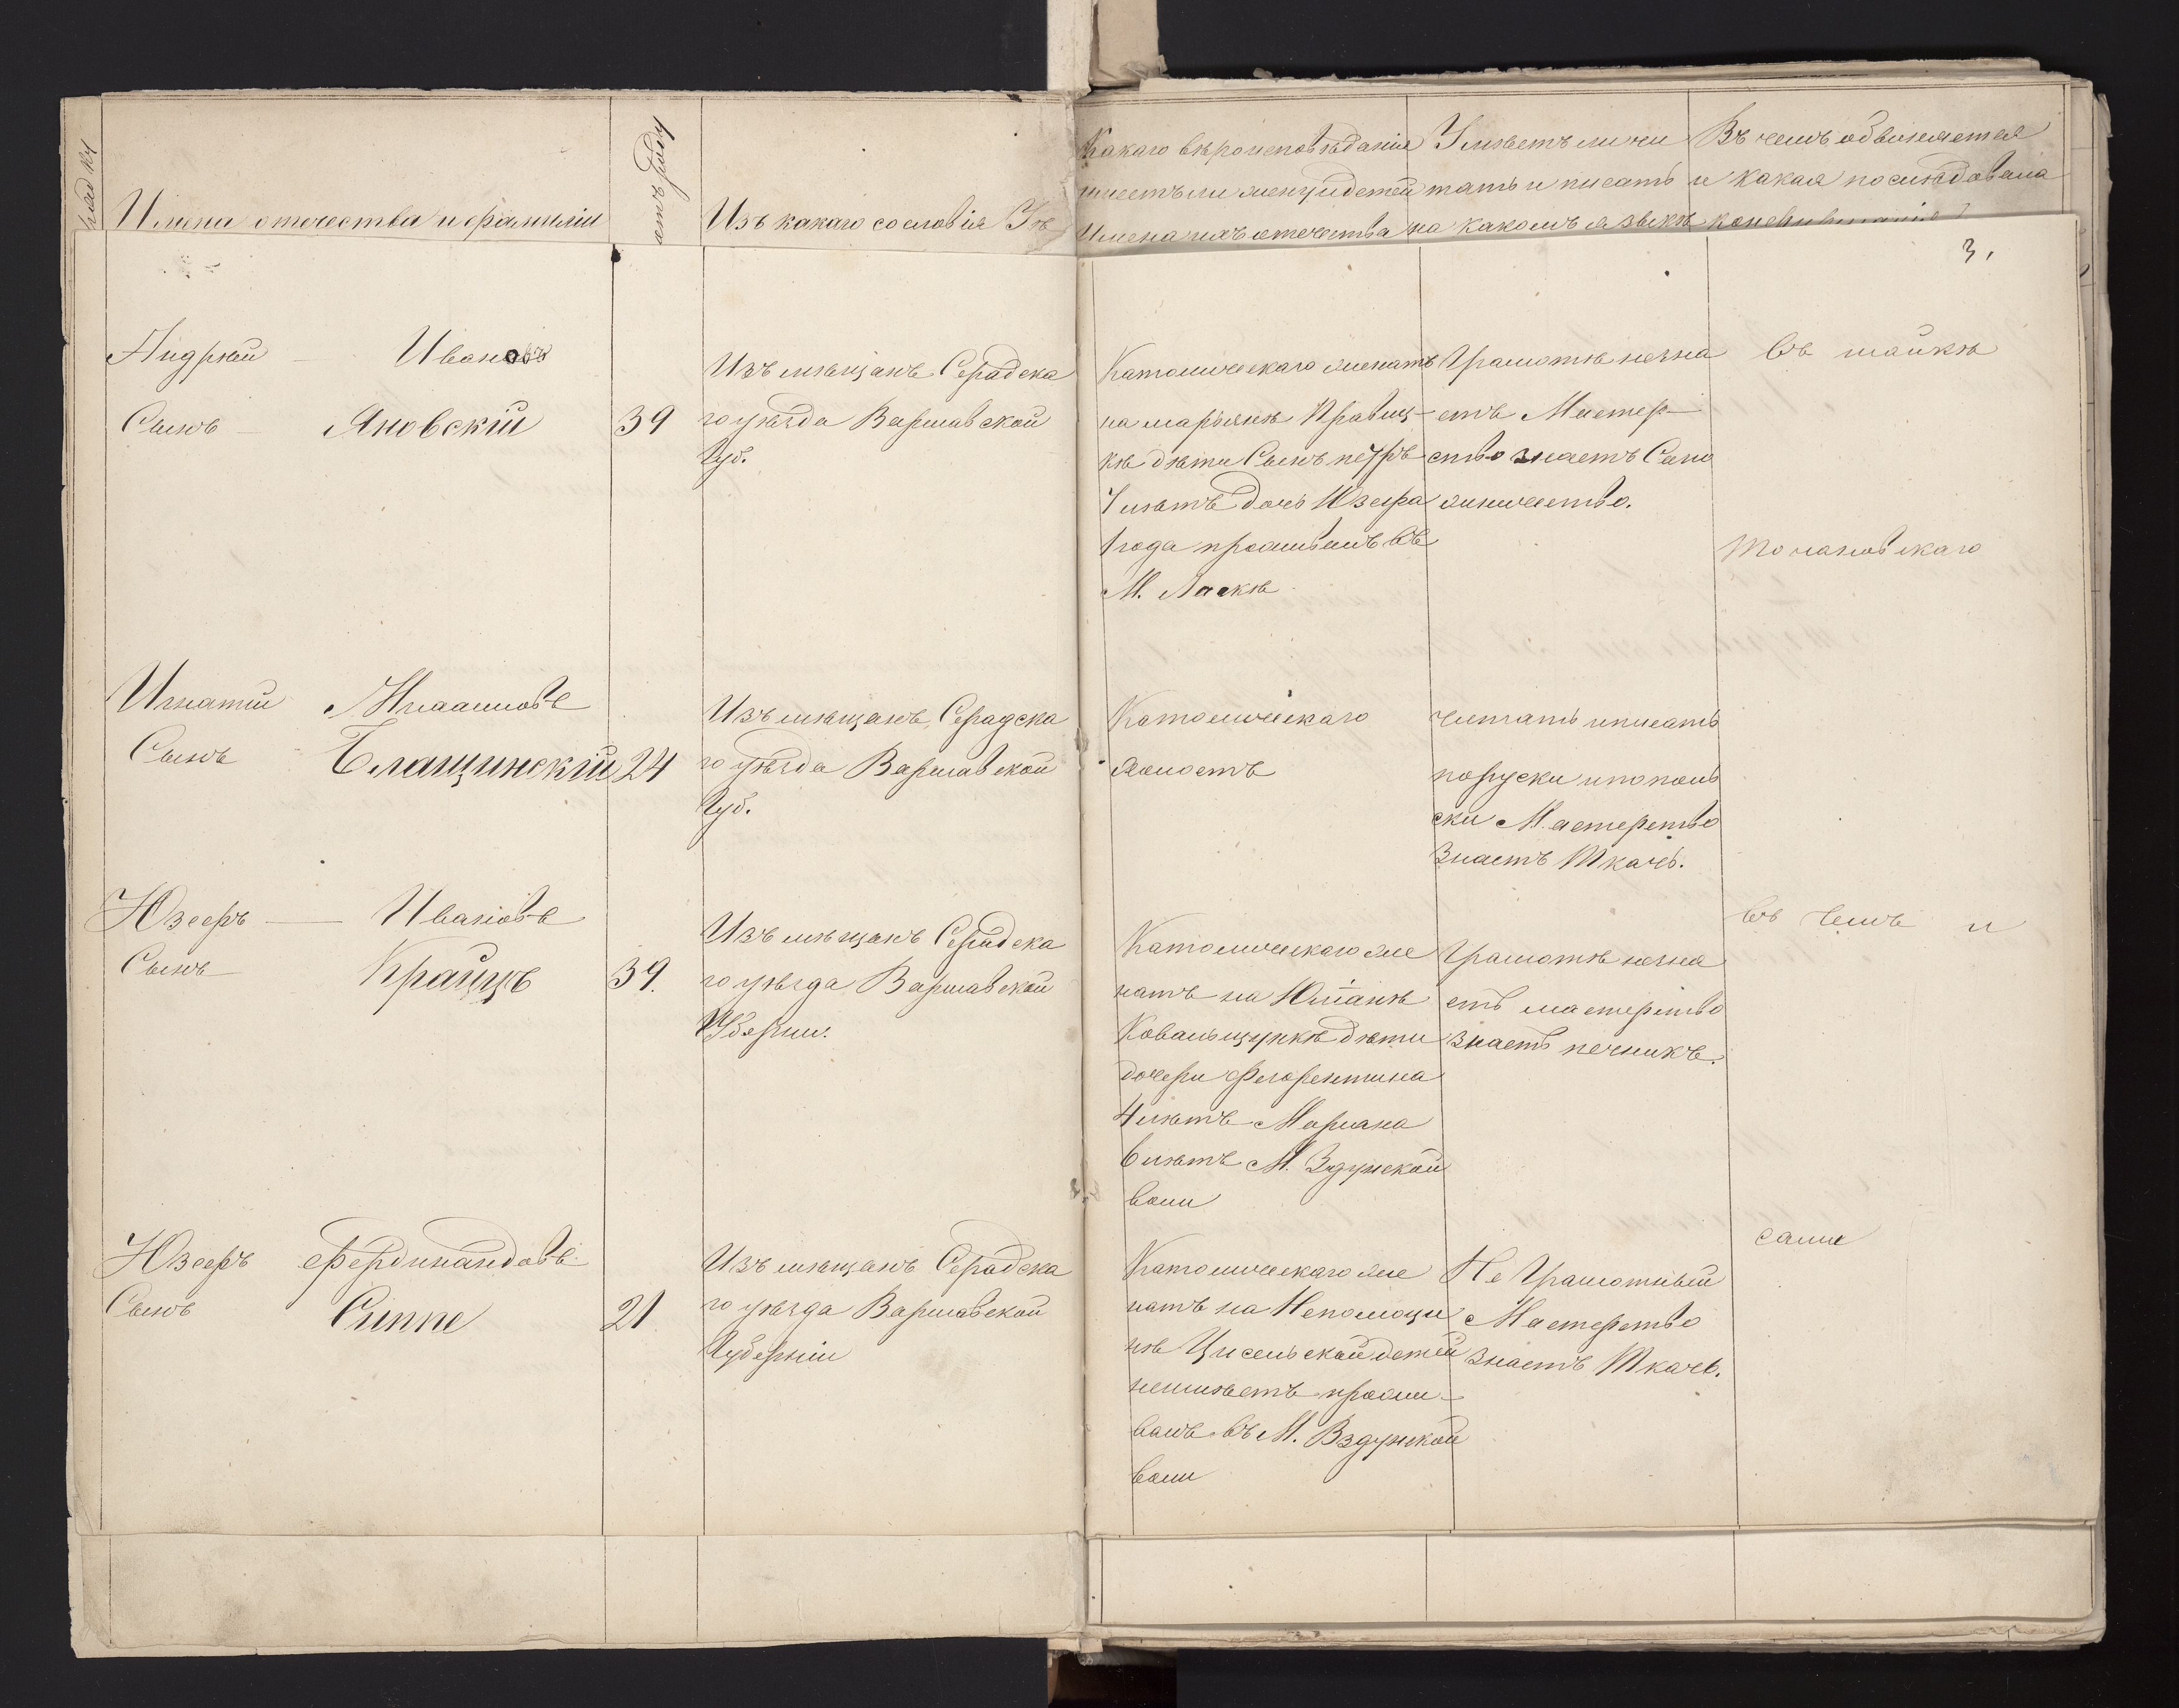 Имена отечества и фамилии
Изъ какаго сословія
Какаго вѣроисповѣданія
имеетъ ли жену и детей
Имена ихъ отечества
Умѣетъ ли чи
тать и писать
на какомъ языкѣ
Въ чемъ обвиняется
и какая последовала
конфирмація
3,
Андрей Ивановъ
Сынъ Яновскій
39
Изъ мѣщанъ Серадска
го уѣзда Варшавской
Губ.
Католическаго женатъ
на марьянѣ Правиц-
кѣ дѣти Сынъ петръ
7 лѣтъ дочь Юзефа
1 года проживалъ въ
М. Ласкѣ
Грамотѣ незна
етъ Мастер-
ство знаетъ Сапо
жничество.
въ шайкѣ
Игнатій
Сынъ Блащинскій
24
Изъ мѣщанъ Серадска
го уѣзда Варшавской
Губ.
Католическаго
холостъ
читать и писать
поруски и пополь
ски Мастерство
Знаетъ Ткачь.
Юзефъ Ивановъ
Сынъ Крайцъ
39.
Изъ мѣщанъ Серадска
го уѣзда Варшавской
Католическаго же
натъ на Юліанѣ
Ковальщункѣ дѣти
дочери Флорентина
4 лѣтъ Марiана
6 лѣтъ М. Здунской
воли
Грамотѣ незна
етъ мастерство
знаетъ печникъ.
въ чемъ и
Юзефъ Фердинандовъ
Сынъ Сиппе
21
Изъ мѣщанъ Серадска
го уѣзда Варшавской
Губерніи
Католическаго же
натъ на Непомоци
нѣ Цисельской детей
неимѣетъ прожи-
валъ въ М. Вздунской
воли
Не Грамотный
Мастерство
знаетъ Ткачь.